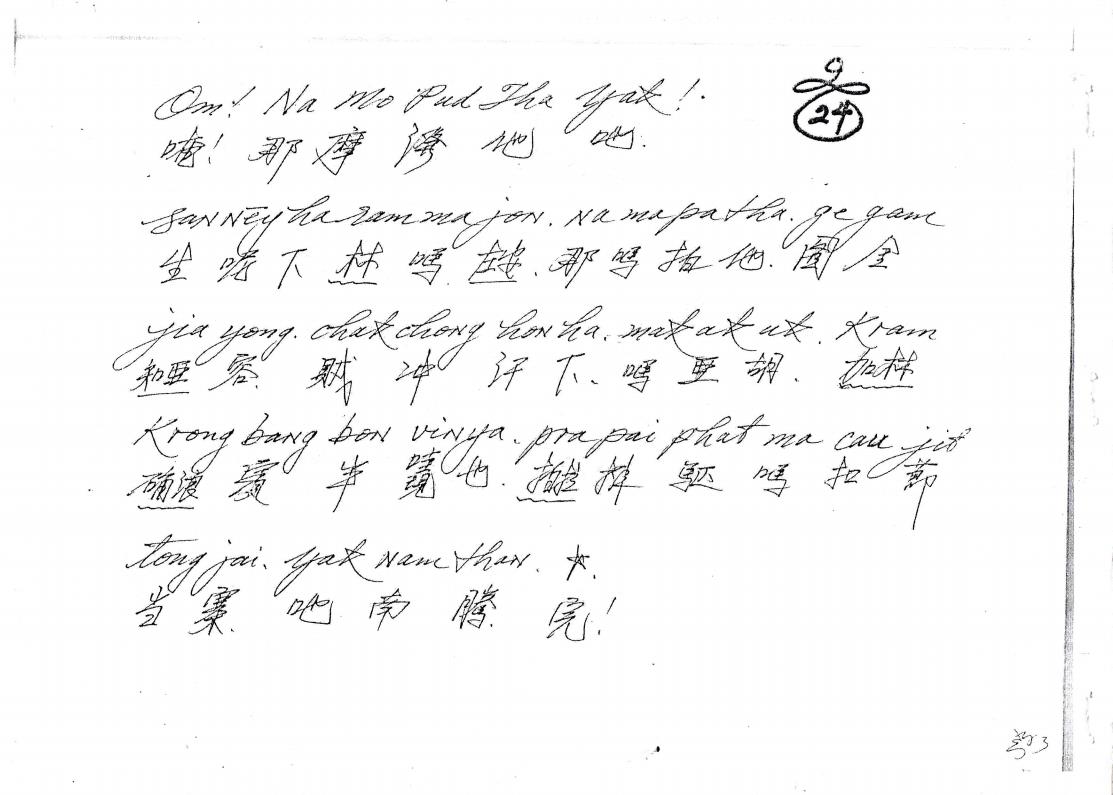 Om! Na Mo Pud Tha Yak!
9
24
唵! 那 摩 地 吔.
san ney ha ram ma jon. na ma pa tha. ge gam
生 呢 下 林 嗎 . 那 嗎 拍 他. 圈 金
jia yong. chak chong hon ha. mak ak uk. Kram
容. 賊 冲 汗 下. 嗎 亜 胡. 加林
Krong bang bon vinya. pra pai phat ma cau jit
半 也. 嗎 扣 節
tong jai. yak nam than. ☆.
当 賽. 吔 南 騰. 完!